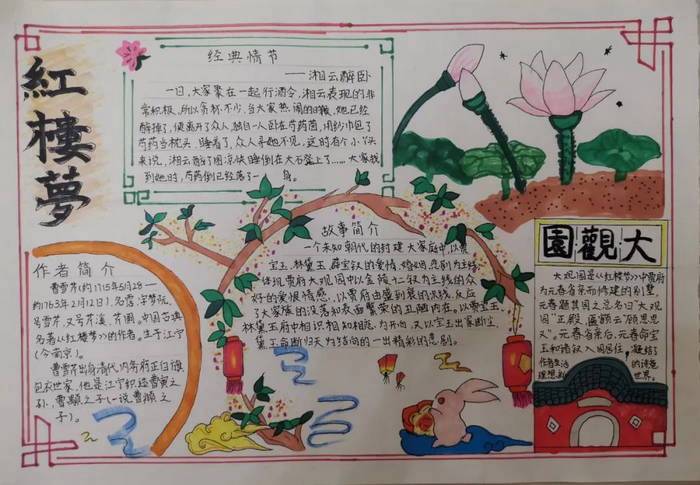 紅樓夢
经典情节
——湘云醉卧
一日,大家聚在一起行酒令,湘云表现的非
常积极,所以贪杯不少,当大家热闹的时候,她已经
醉捧了,便离开了众人,独自一人卧在芍药茵,用纱巾包了
芍药当枕头,睡着了,众人寻她不见,这时有个小丫头
来说,湘云醉了图凉快睡倒在大石凳上了……大家找
到她时,芍药倒已经落了一身。
作者简介
曹雪芹(约1715年5月28—
约1763年2月12日),名霑,字梦阮,
号雪芹,又号芹溪、芹圃。中国古典
名著《红楼梦》的作者。生于江宁
(今南京)。
曹雪芹出身清代内务府正白旗
包衣世家,他是江宁织造曹寅之
孙,曹颙之子(一说曹頫之
子)。
故事简介
一个未知朝代的封建大家庭中,以贾
宝玉、林黛玉、薛宝钗的爱情、婚姻悲剧为主线
体现贾府大观园中以金陵十二钗为主线的众
好的爱恨情感,以贾府由盛到衰的水线,反应
了大家族的没落和表面繁荣的丑陋内在。以贾宝玉、
林黛玉府中相识相知相恋为开心,又以宝玉出家断尘,
黛玉命断归天为结局的一出精彩的悲剧。
大觀園
大观园是《红楼梦》中贾府
为元春省亲而修建的别墅
元春题其园之总名曰"大观
园"正殿匾额云"顾恩思
义"。元春省亲后,元春命宝
玉和诸钗入园居住,凝结了
作者生活的诗意
理想的世界。